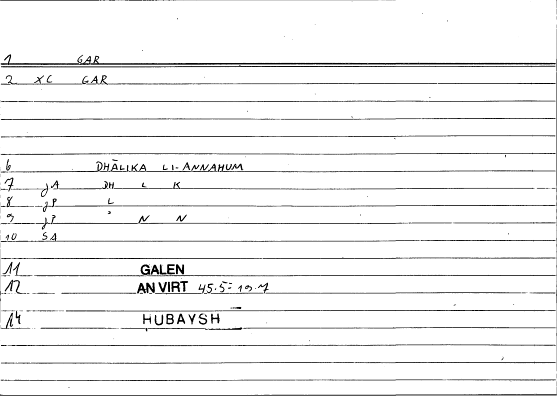 1 GAR
2 XC GAR
6 DHĀLIKA LI-ANNAHUM
7 JA DH L K
8 JP L
9 JP ʾ N N
10 SA
11 GALEN
12 AN VIRT 45.5 = 19.7
14 HUBAYSH